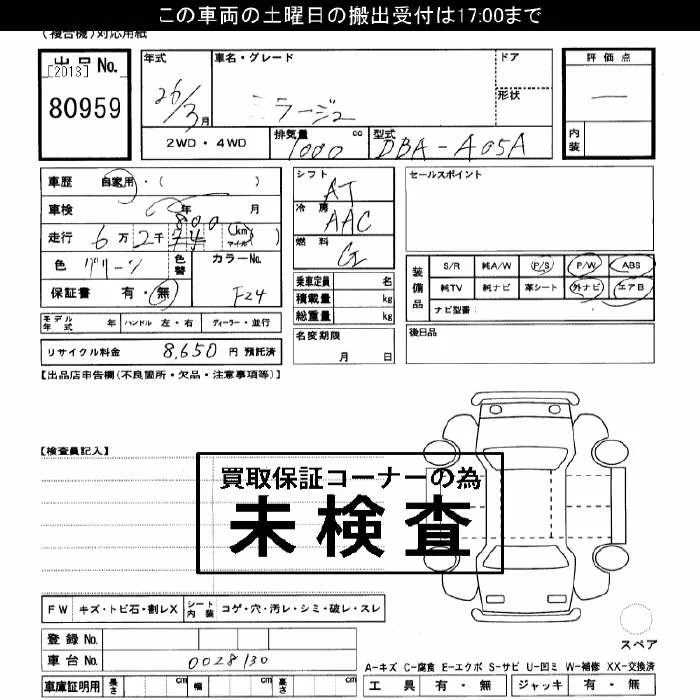 この車両の土曜日の搬出受付は17:00まで
(複合機)対応用紙
出品No. [2013] 80959
年式 26/3月
車名・グレード ミラージュ
ドア
形状
2WD・4WD
排気量 1000 cc
型式 DBA-A05A
評価点 —
内装
車歴 自家用・( )
車検 年 月
走行 6万2千800 (km マイル)
色 グリーン 色替 カラーNo. F24
保証書 有・無
シフト AT
冷房 AAC
燃料 G
乗車定員 名
積載量 kg
総重量 kg
セールスポイント
装備品 S/R 純A/W P/S P/W ABS
純TV 純ナビ 革シート 外ナビ エアB
ナビ型番
モデル年式 年 ハンドル 左・右 ディーラー・並行
リサイクル料金 8,650 円 預託済
名変期限 月 日
後日品
【出品店申告欄(不良箇所・欠品・注意事項等)】
【検査員記入】
買取保証コーナーの為
未検査
FW キズ・トビ石・割レX シート内装 コゲ・穴・汚レ・シミ・破レ・スレ
登録No.
車台No. 0028130
車庫証明用 長さ cm 幅 cm 高さ cm
スペア
A-キズ C-腐食 E-エクボ S-サビ U-凹ミ W-補修 XX-交換済
工具 有・無 ジャッキ 有・無